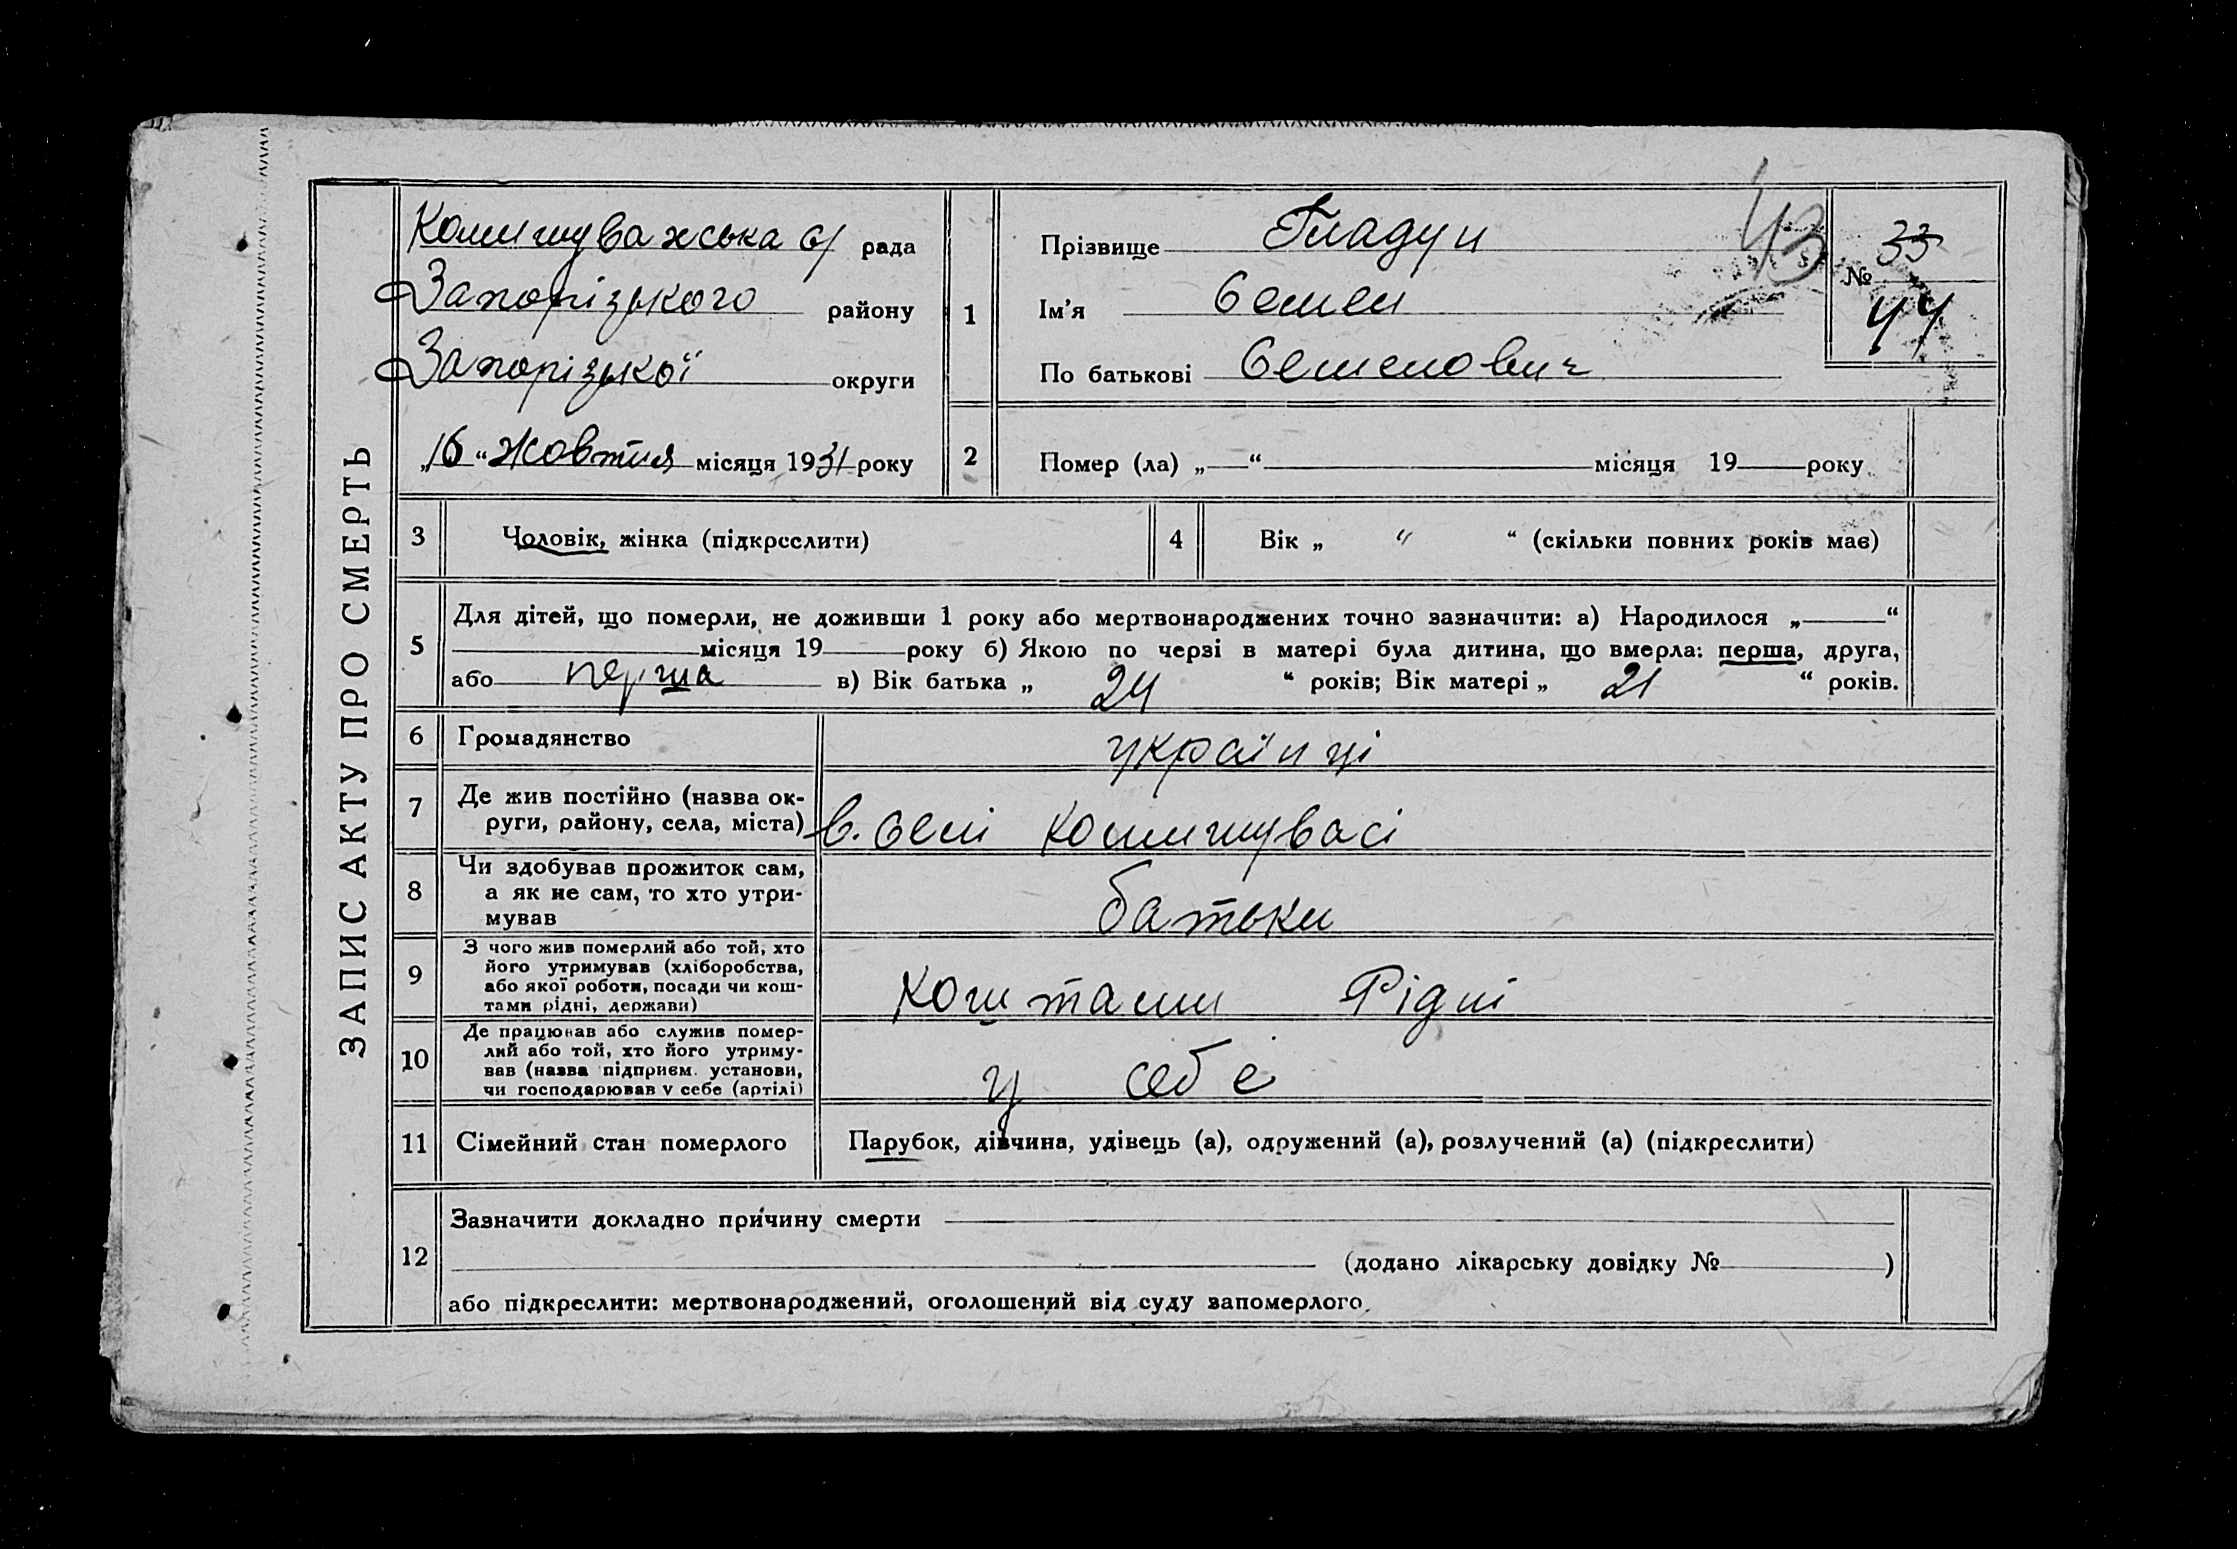 ЗАПИС АКТУ ПРО СМЕРТЬ
Комишуважська с/ рада
Запорізького району
Запорізької округи
„16“ Жовтня місяця 1931 року
1
Прізвище Гладун
Ім'я Семен
По батькові Семенович
43
№ 33
44
2 Помер (ла) „ “ місяця 19 року
3 Чоловік, жінка (підкреслити)
4 Вік „ “ “ (скільки повних років має)
5 Для дітей, що померли, не доживши 1 року або мертвонароджених точно зазначити: а) Народилося „ “
місяця 19 року б) Якою по черзі в матері була дитина, що вмерла: перша, друга,
або перша в) Вік батька „ 24 “ років; Вік матері „ 21 “ років.
6 Громадянство українці
7 Де жив постійно (назва ок-
руги, району, села, міста) в. селі Комишувасі
8 Чи здобував прожиток сам,
а як не сам, то хто утри-
мував батьки
9 З чого жив померлий або той, хто
його утримував (хліборобства,
або якої роботи, посади чи кош-
тами рідні, держави) Коштами Рідні
10 Де працював або служив помер-
лий або той, хто його утриму-
вав (назва підприєм. установи,
чи господарював у себе (артілі) у себе
11 Сімейний стан померлого Парубок, дівчина, удівець (а), одружений (а), розлучений (а) (підкреслити)
12 Зазначити докладно причину смерти
(додано лікарську довідку № )
або підкреслити: мертвонароджений, оголошений від суду запомерлого.